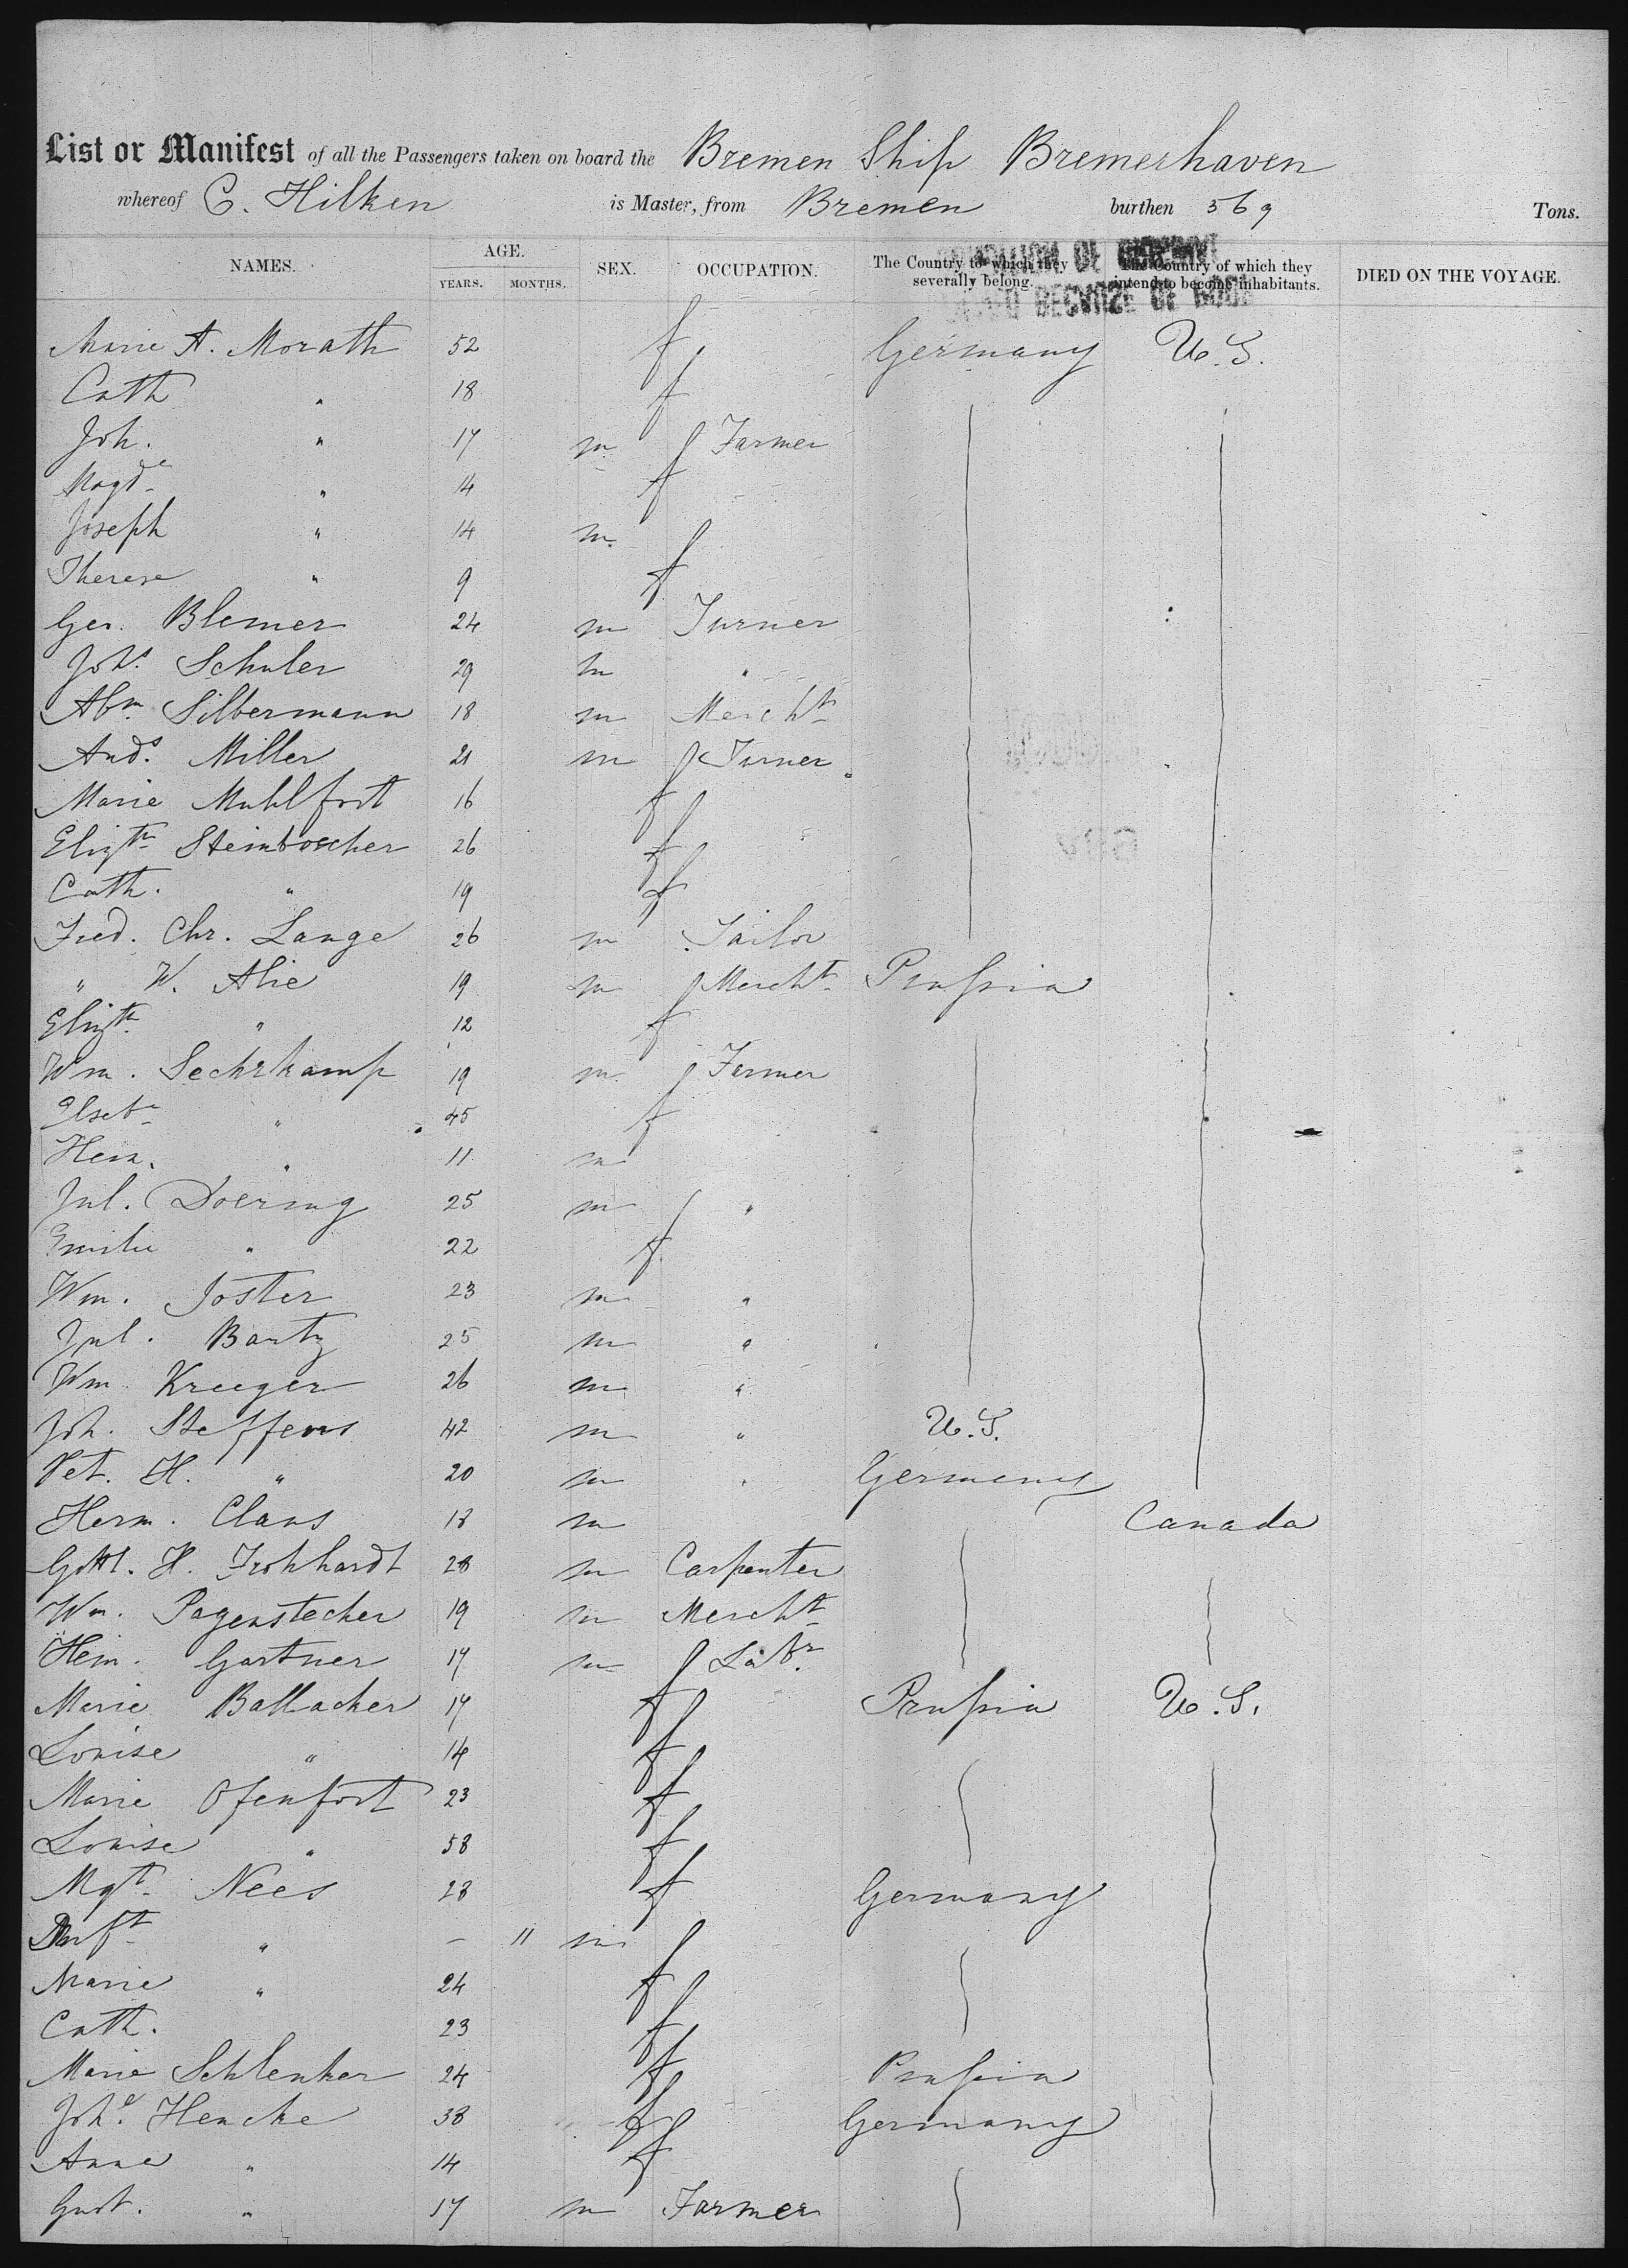 List or Manifest of all the Passengers taken on board the Bremen Ship Bremerhaven
whereof C. Hilken is Master, from Bremen burthen 569 Tons.
NAMES. AGE. YEARS. MONTHS. SEX. OCCUPATION. The Country to which they severally belong. The Country of which they intend to become inhabitants. DIED ON THE VOYAGE.
Marie A. Morath 52 f Germany U.S.
Cath " 18 f
Joh. " 17 m Farmer
Magde " 14 f
Joseph " 14 m
Therese " 9 f
Geo. Blemer 24 m Turner
Johs. Schuler 29 m "
Abm. Silbermann 18 m Mercht
Ands. Miller 21 m Turner
Marie Muhlfort 16 f
Elizth Steinboscher 26 f
Cath. " 19 f
Fred. Chr. Lange 26 m Tailor
" W. Alie 19 m Mercht Prussia
Elizth " 12 f
Wm. Sechrkamp 19 m Farmer
Elsbe " 45 f
Hein. " 11 m
Jul. Doering 25 m "
Emilie " 22 f
Wm. Joster 23 m "
Jul. Bartz 25 m "
Wm Kreeger 26 m "
Joh. Steffens 42 m " U.S.
Pet. H. " 20 m " Germany
Herm. Claus 18 m Canada
Gottl. H. Frohhardt 28 m Carpenter
Wm. Pagenstecher 19 m Mercht
Hein. Gartner 17 m Labr.
Marie Ballacker 17 f Prussia U.S.
Louise " 14 f
Marie Ofenfort 23 f
Louise " 58 f
Mgt. Nees 28 f Germany
" - 11 m
Marie " 24 f
Cath. 23 f
Marie Schlenker 24 f Prussia
Johe. Hencke 38 f Germany
Anna " 14 f
Gust. " 17 m Farmer